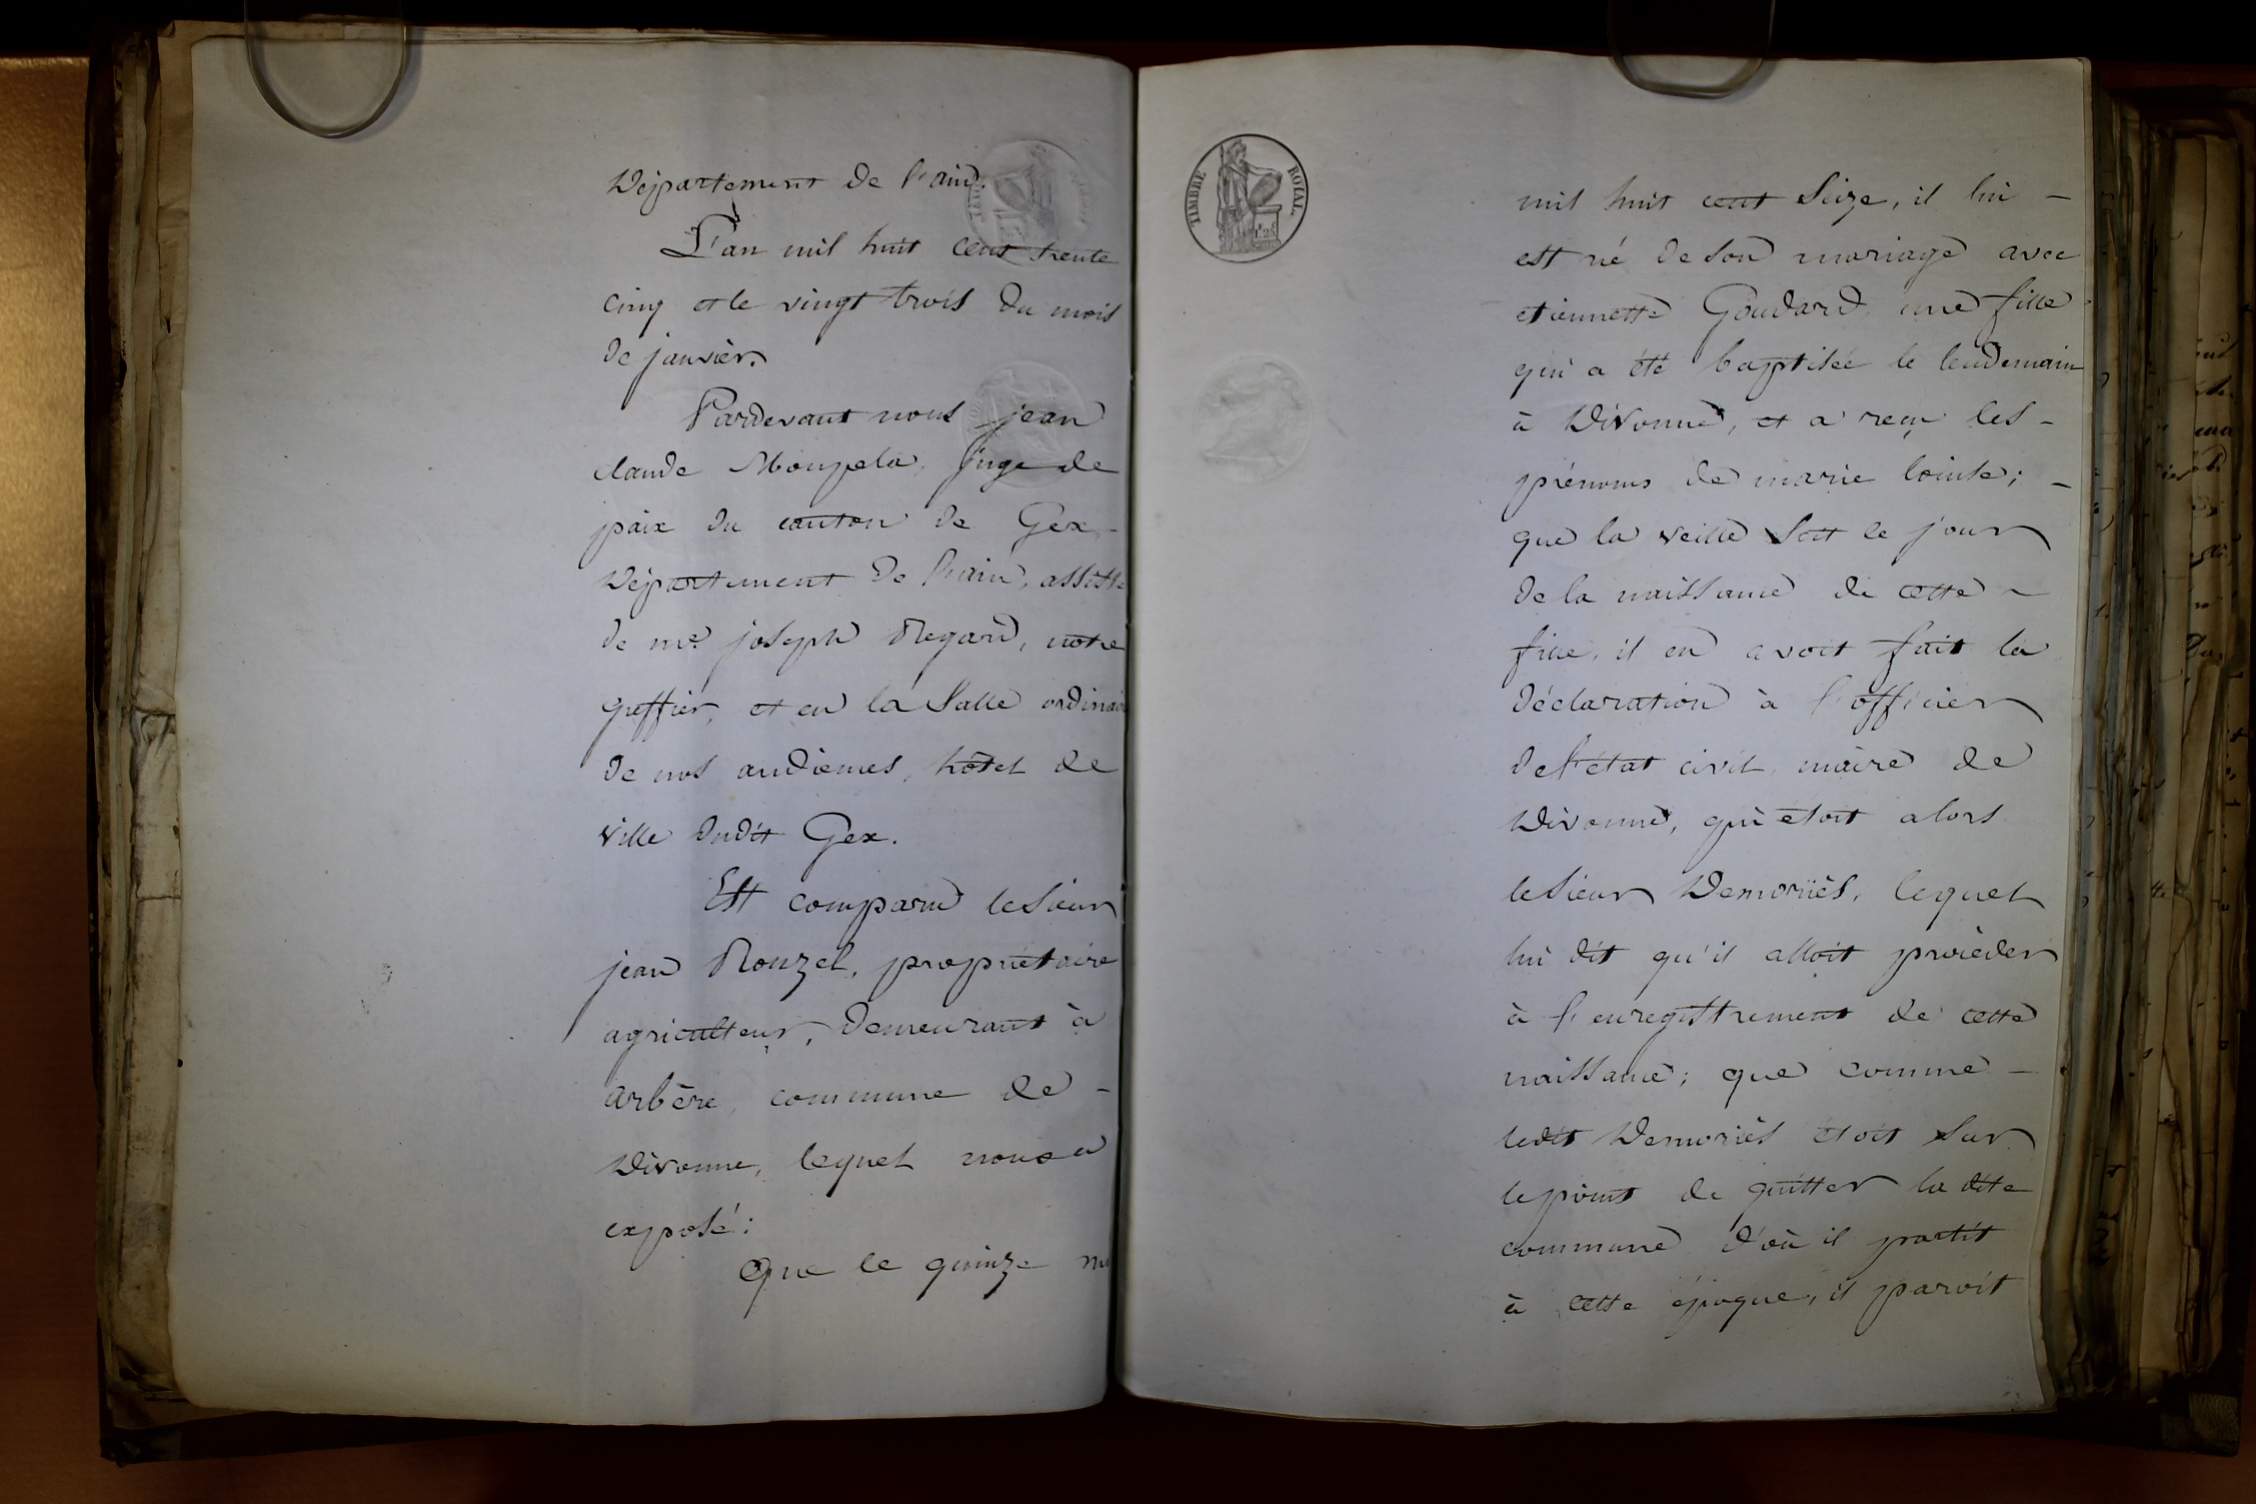 Département de l'ain.
L'an mil huit cent trente
cinq et le vingt trois du mois
de janvier.
Pardevant nous jean
claude Mouzela, juge de
paix du canton de Gex
Département de l'ain, assisté
de me joseph Regard, notre
greffier, et en la Salle ordinaire
de nos audiences, hôtel de
ville dudit Gex.
Est comparu le Sieur
jean Rouzel, propriétaire
agriculteur, demeurant à
arbère, commune de -
Divonne, lequel nous a
exposé:
Que le quinze
TIMBRE ROYAL
mil huit cent Seize, il lui -
est né de Son mariage avec
etiennette Goudard, une fille
qui a été baptisée le lendemain
à Divonne, et a reçu les -
prénoms de marie ; -
que la veille Soit le jour
de la naissance de cette -
fille, il en avoit fait la
déclaration à l'officier
de l'état civil, maire de
Divonne, qui étoit alors
le Sieur Demoriès, lequel
lui dit qu'il alloit procèder
à l'enregistrement de cette
naissance; que comme -
ledit Demoriès étoit Sur
le point de quitter la dite
commune d'où il partit
à cette époque, il paroit